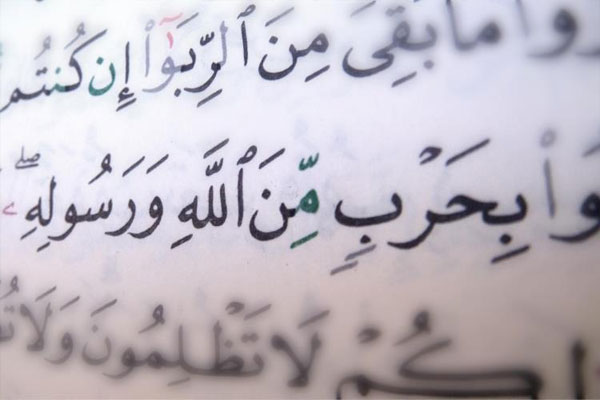 رُوا۟ مَا بَقِىَ مِنَ ٱلرِّبَوٰٓا۟ إِن كُنتُم
وَا۟ بِحَرْبٍ مِّنَ ٱللَّهِ وَرَسُولِهِۦ ۖ
لِكُمْ لَا تَظْلِمُونَ وَلَا تُ